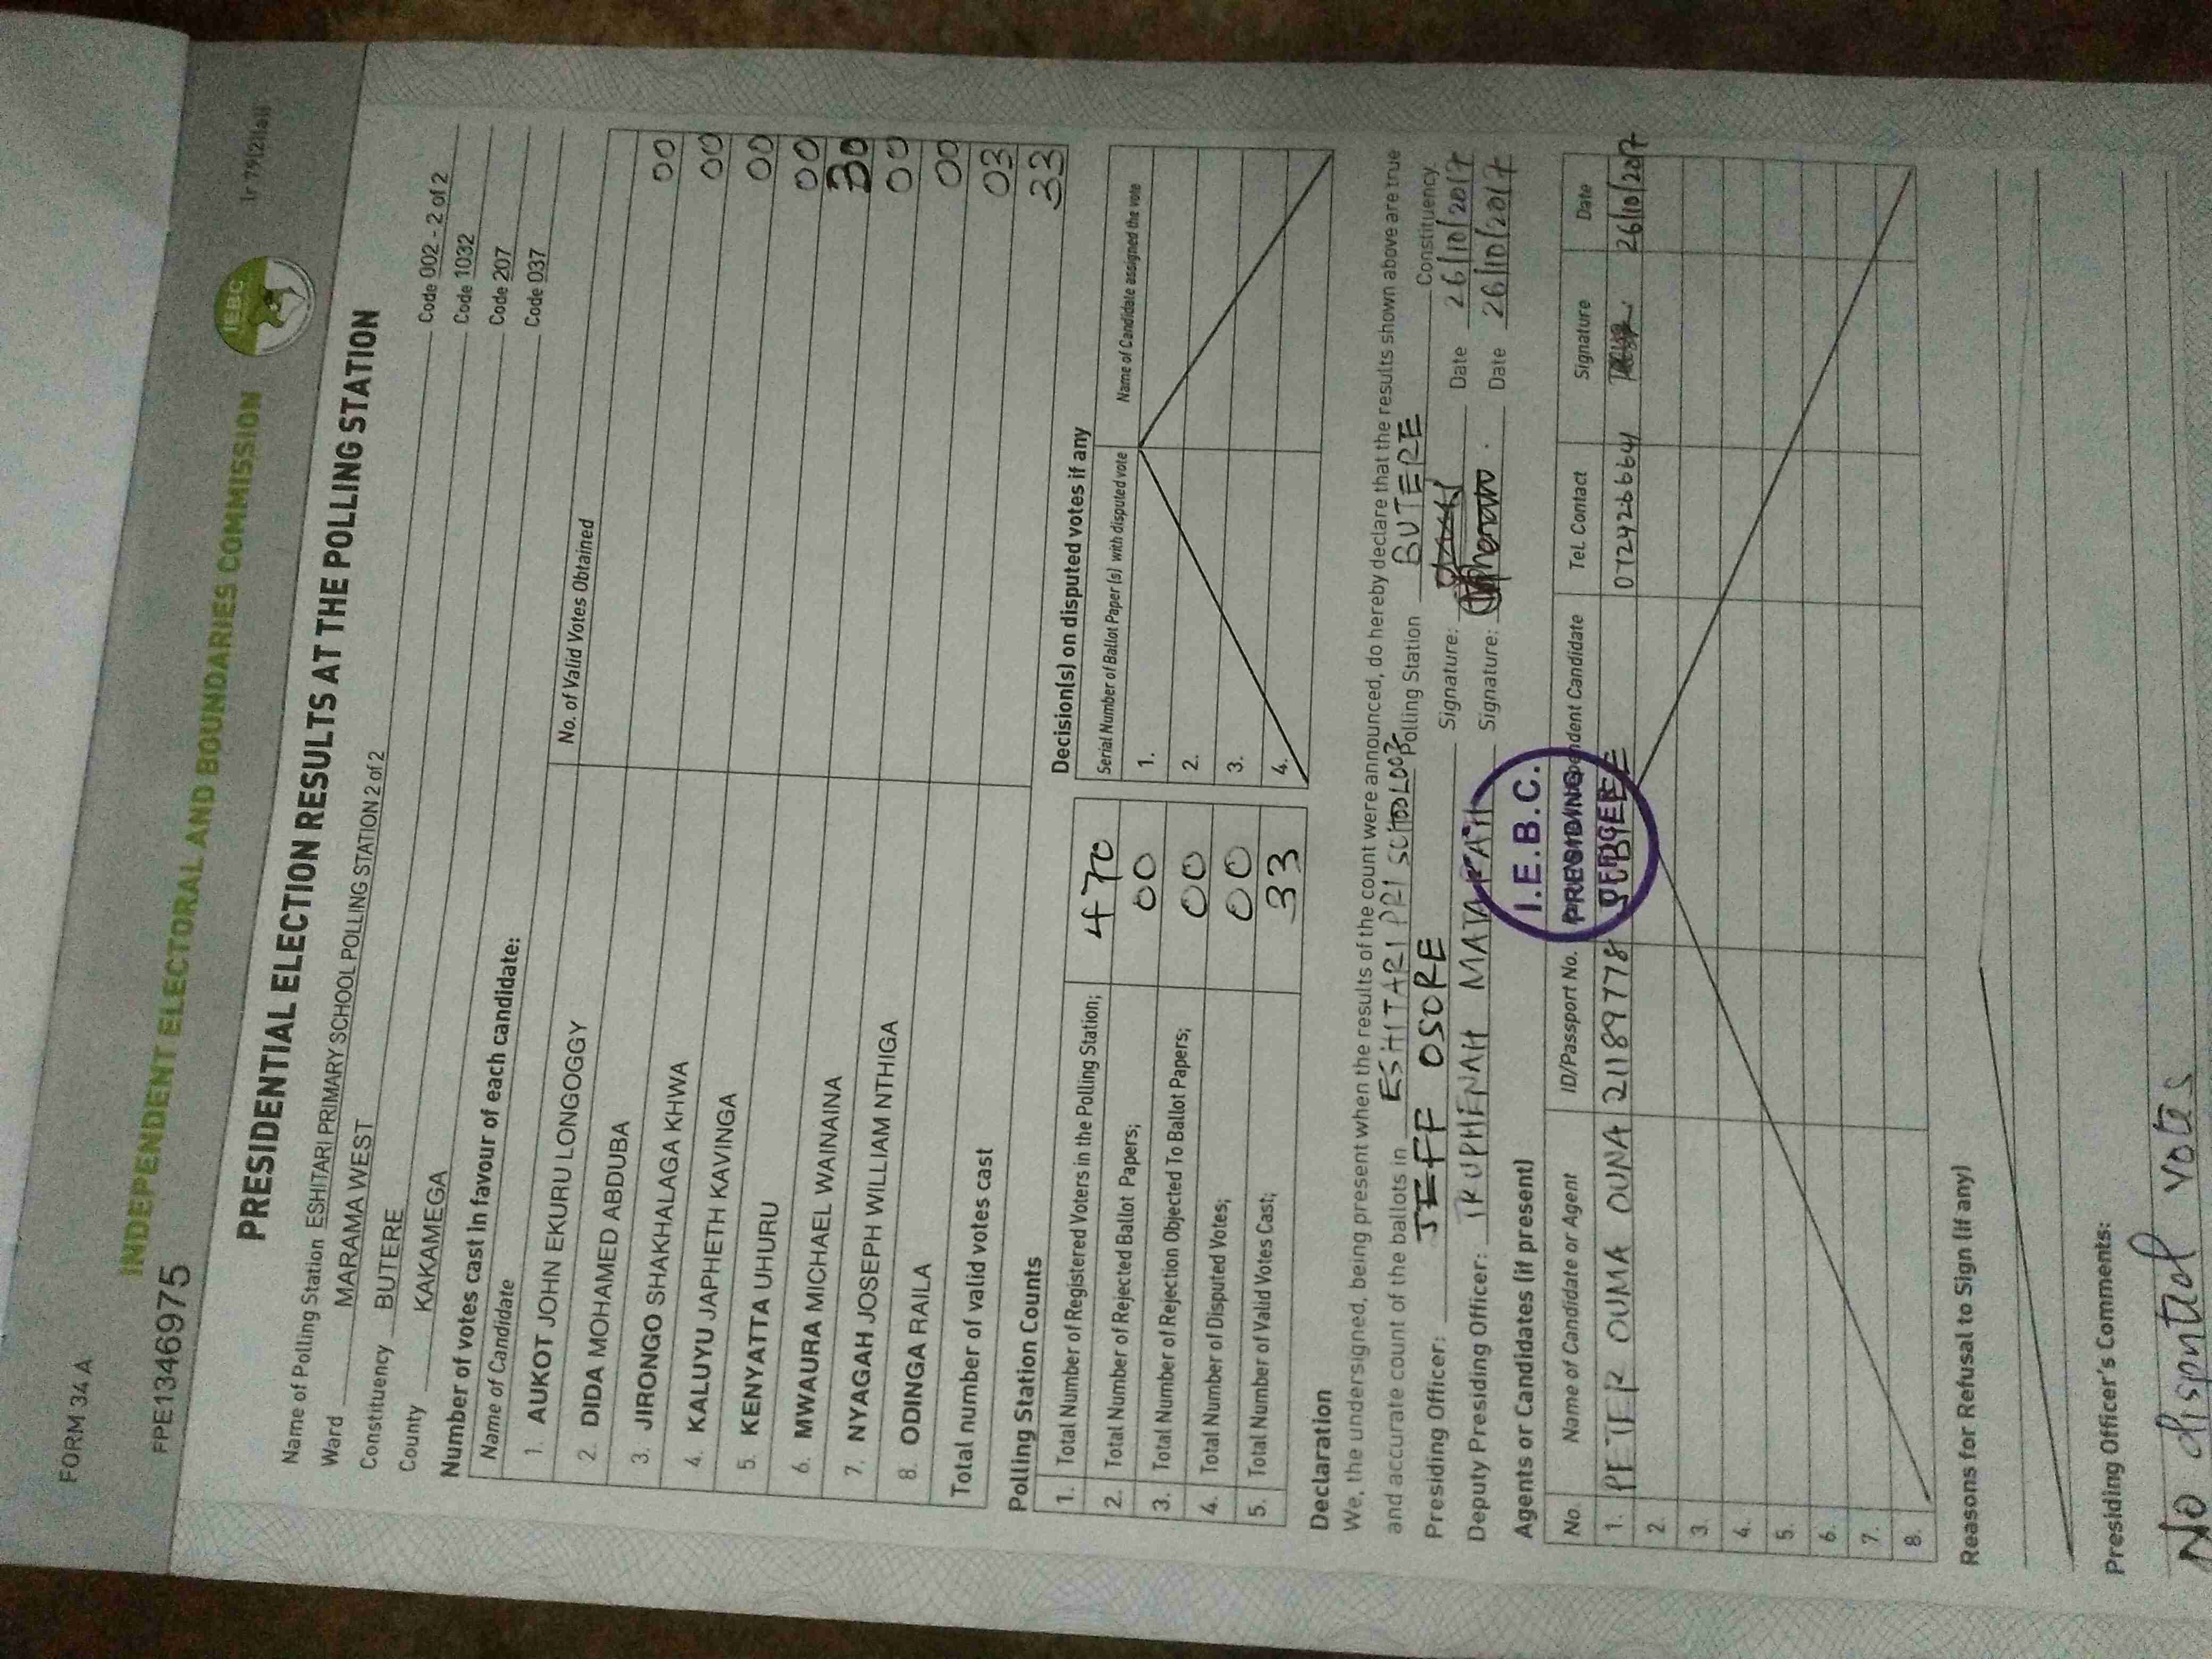 FORM 34 A
INDEPENDENT ELECTORAL AND BOUNDARIES COMMISSION
FPE1346975
IEBC
PRESIDENTIAL ELECTION RESULTS AT THE POLLING STATION
Name of Polling Station ESHITARI PRIMARY SCHOOL POLLING STATION 2 of 2 Code 002 - 2 of 2
Ward MARAMA WEST Code 1032
Constituency BUTERE Code 207
County KAKAMEGA Code 037
Number of votes cast in favour of each candidate:
Name of Candidate No. of Valid Votes Obtained
1. AUKOT JOHN EKURU LONGOGGY 00
2. DIDA MOHAMED ABDUBA 00
3. JIRONGO SHAKHALAGA KHWA 00
4. KALUYU JAPHETH KAVINGA 00
5. KENYATTA UHURU 30
6. MWAURA MICHAEL WAINAINA 00
7. NYAGAH JOSEPH WILLIAM NTHIGA 00
8. ODINGA RAILA 03
Total number of valid votes cast 33
Polling Station Counts
1. Total Number of Registered Voters in the Polling Station; 470
2. Total Number of Rejected Ballot Papers; 00
3. Total Number of Rejection Objected To Ballot Papers; 00
4. Total Number of Disputed Votes; 00
5. Total Number of Valid Votes Cast; 33
Decision(s) on disputed votes if any
Serial Number of Ballot Paper (s) with disputed vote Name of Candidate assigned the vote
1.
2.
3.
4.
Declaration
We, the undersigned, being present when the results of the count were announced, do hereby declare that the results shown above are true
and accurate count of the ballots in ESHITARI PRI SCHOOL Polling Station BUTERE Constituency.
Presiding Officer: JEFF OSORE Signature: Date 26/10/2017
Deputy Presiding Officer: TRUPHENAH MATAPATI Signature: Date 26/10/2017
Agents or Candidates (if present)
I.E.B.C.
PRESIDING
No. Name of Candidate or Agent ID/Passport No. Candidate Tel. Contact Signature Date
1. PETER OUMA OUNA 21189778 0724266641 26/10/2017
2.
3.
4.
5.
6.
7.
8.
Reasons for Refusal to Sign (if any)
Presiding Officer's Comments:
No disputed votes